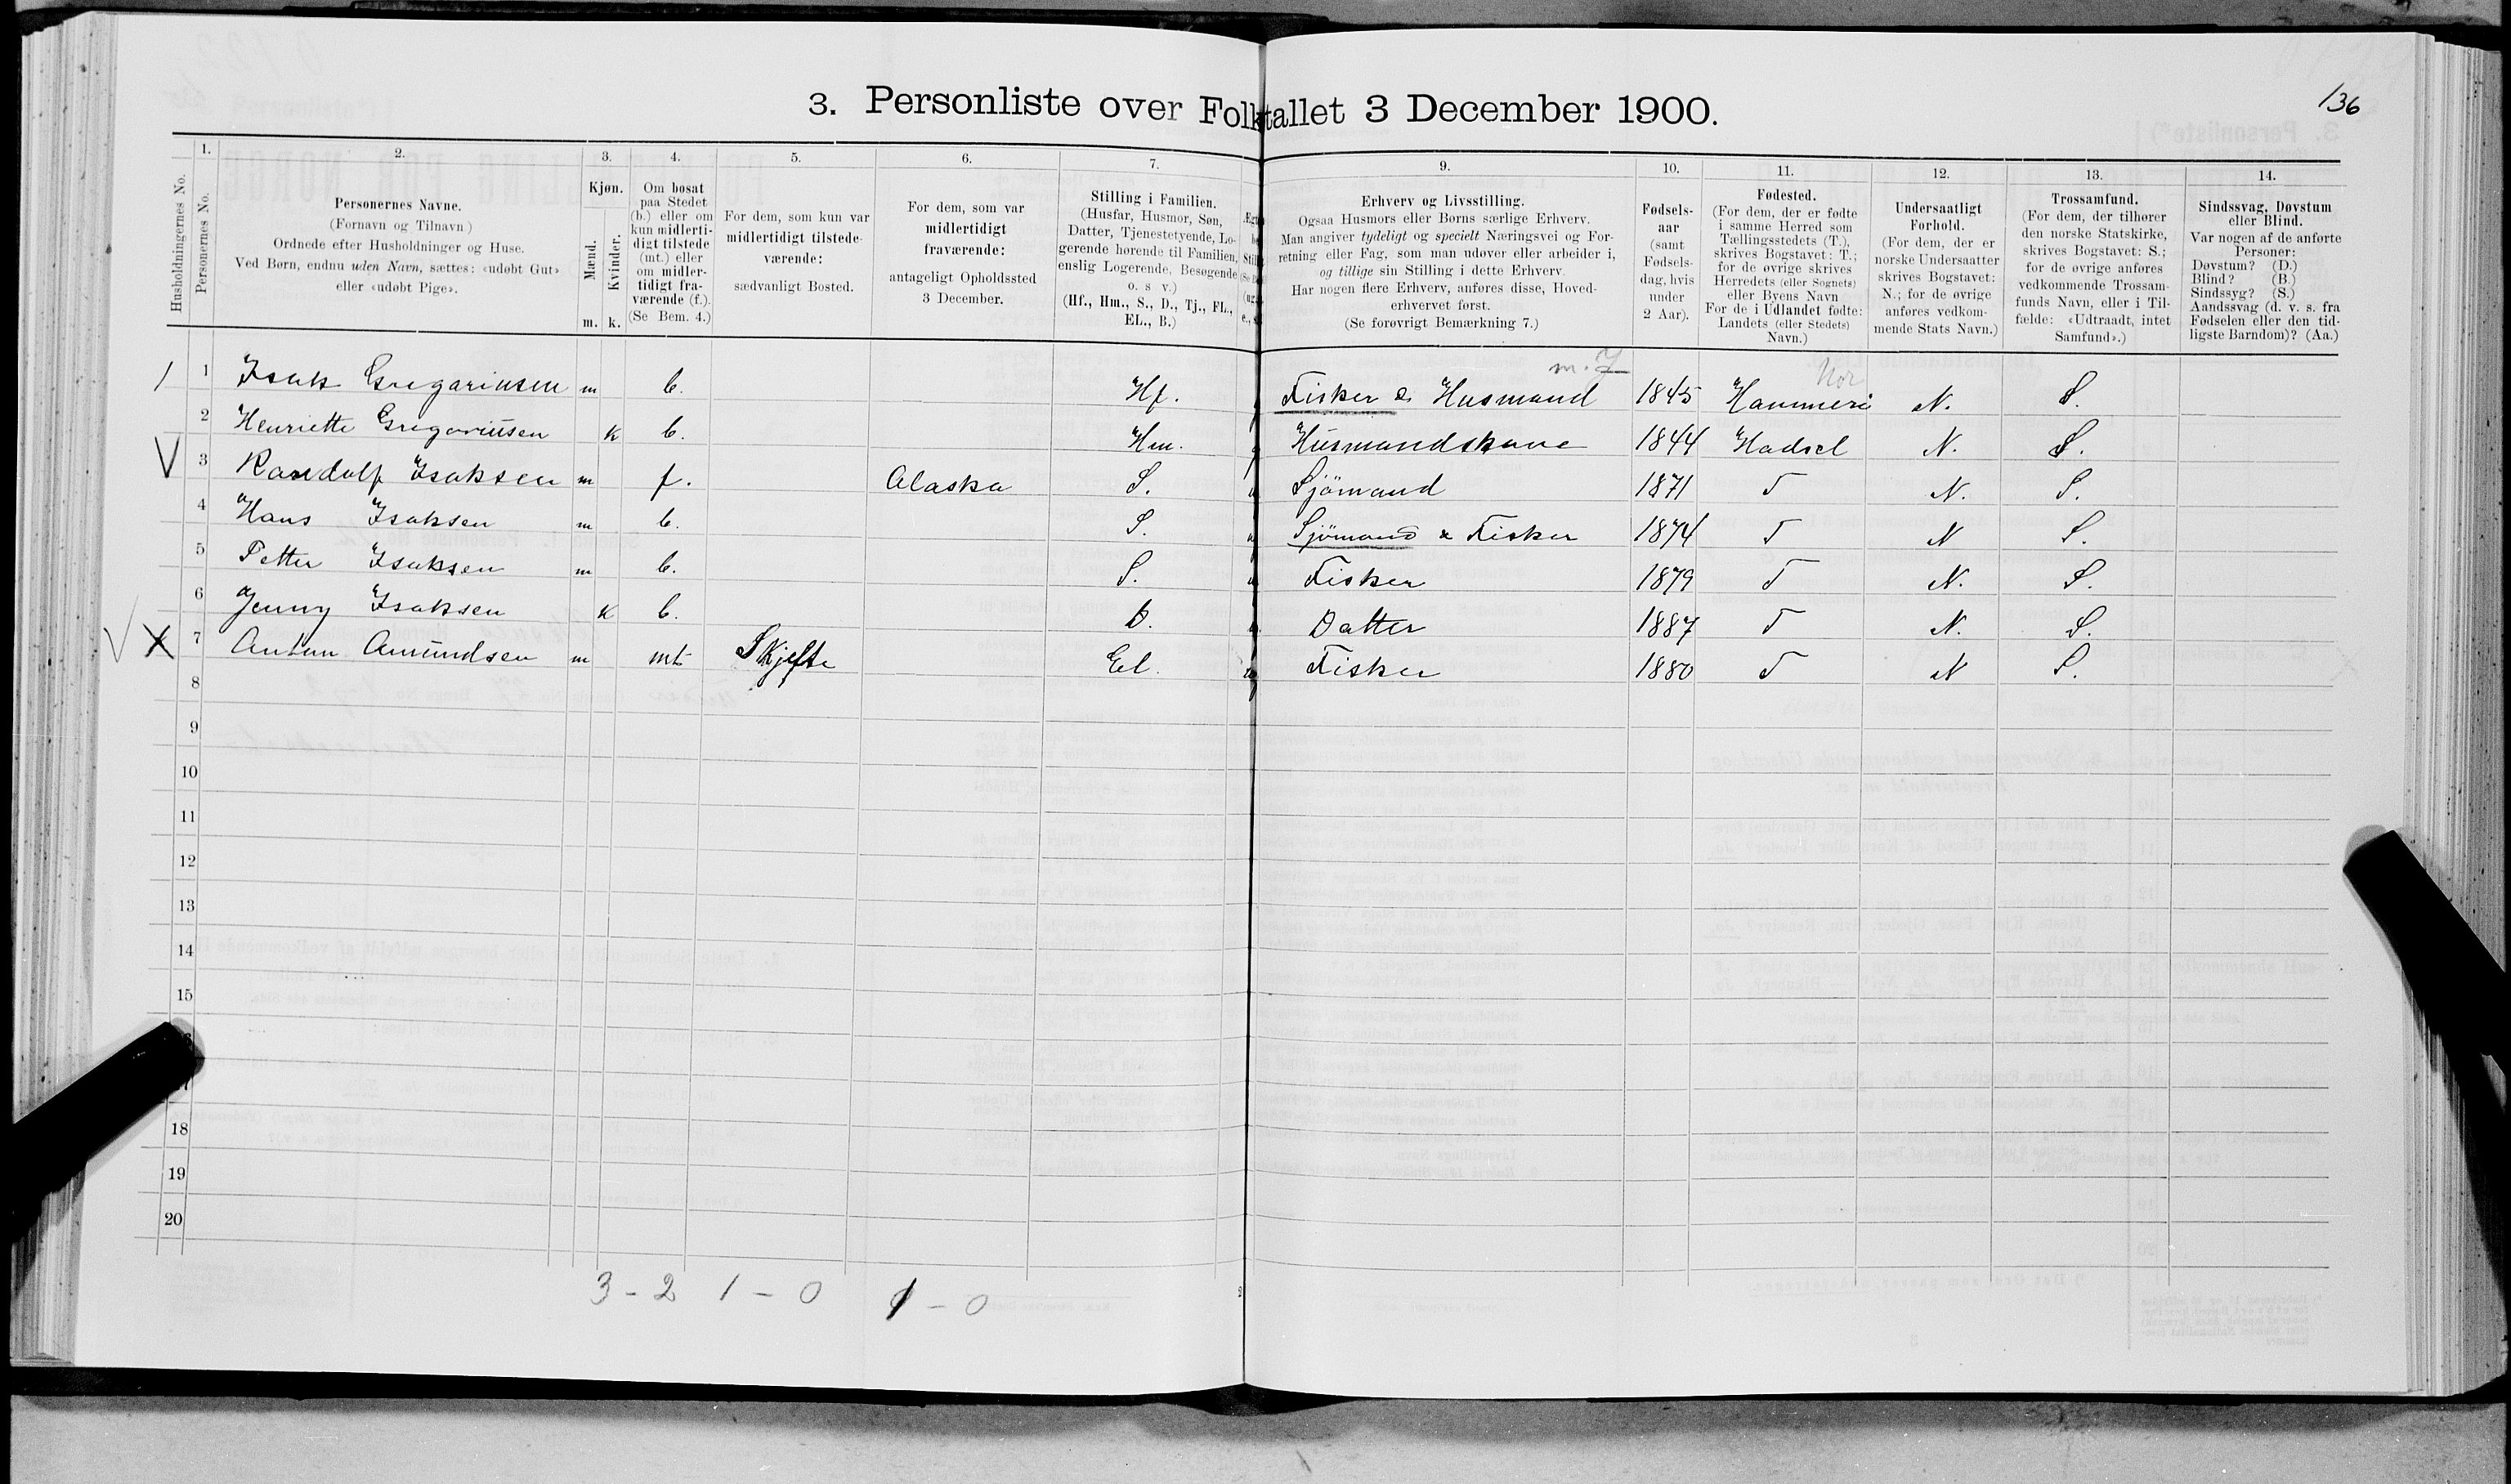 136
3. Personliste over Folketallet 3 December 1900.
1. 2. 3. 4. 5. 6. 7. 9. 10. 11. 12. 13. 14.
Husholdningernes No.
Personernes No.
Personernes Navne.
(Fornavn og Tilnavn)
Ordnede efter Husholdninger og Huse.
Ved Børn, endnu uden Navn, sættes: «udøbt Gut»
eller «udøbt Pige».
Kjøn.
Mænd.
Kvinder.
m. k.
Om bosat
paa Stedet
(b.) eller om
kun midlerti-
digt tilstede
(mt.) eller
om midler-
tidigt fra-
værende (f.).
(Se Bem. 4.)
For dem, som kun var
midlertidigt tilstede-
værende:
sædvanligt Bosted.
For dem, som var
midlertidigt
fraværende:
antageligt Opholdssted
3 December.
Stilling i Familien.
(Husfar, Husmor, Søn,
Datter, Tjenestetyende, Lo-
gerende hørende til Familien,
enslig Logerende, Besøgende
o. s v.)
(Hf., Hm., S., D., Tj., FL.,
EL., B.)
Erhverv og Livsstilling.
Ogsaa Husmors eller Børns særlige Erhverv.
Man angiver tydeligt og specielt Næringsvei og For-
retning eller Fag, som man udøver eller arbeider i,
og tillige sin Stilling i dette Erhverv.
Har nogen flere Erhverv, anføres disse, Hoved-
erhvervet først.
(Se forøvrigt Bemærkning 7.)
Fødsels-
aar
(samt
Fødsels-
dag, hvis
under
2 Aar).
Fødested.
(For dem, der er fødte
i samme Herred som
Tællingsstedets (T.),
skrives Bogstavet: T.;
for de øvrige skrives
Herredets (eller Sognets)
eller Byens Navn
For de i Udlandet fødte:
Landets (eller Stedets)
Navn.)
Undersaatligt
Forhold.
(For dem, der er
norske Undersaatter
skrives Bogstavet:
N.; for de øvrige
anføres vedkom-
mende Stats Navn.)
Trossamfund.
(For dem, der tilhører
den norske Statskirke,
skrives Bogstavet: S.;
for de øvrige anføres
vedkommende Trossam-
funds Navn, eller i Til-
fælde: «Udtraadt, intet
Samfund».)
Sindssvag, Døvstum
eller Blind.
Var nogen af de anførte
Personer:
Døvstum? (D.)
Blind? (B.)
Sindssyg? (S.)
Aandssvag (d. v. s. fra
Fødselen eller den tid-
ligste Barndom)? (Aa.)
m. J Nor
1 1 Isak Gregariusen m b. Hf. Fisker & Husmand 1845 Hammerö N. S.
2 Henriette Gregariusen k b. Hm. Husmandskone 1844 Hadsel N. S.
V 3 Randolf Isaksen m f. Alaska S. Sjömand 1871 T N. S.
4 Hans Isaksen m b. S. Sjömand & Fisker 1874 T N S.
5 Petter Isaksen m b. S. Fisker 1879 T N. S.
6 Jenny Isaksen k b. D. Datter 1887 T N. S.
V X 7 Anton Amundsen m mt Skjefte El. Fisker 1880 T N S.
8
9
10
11
12
13
14
15
18
19
20
3 - 2 1 - 0 1 - 0